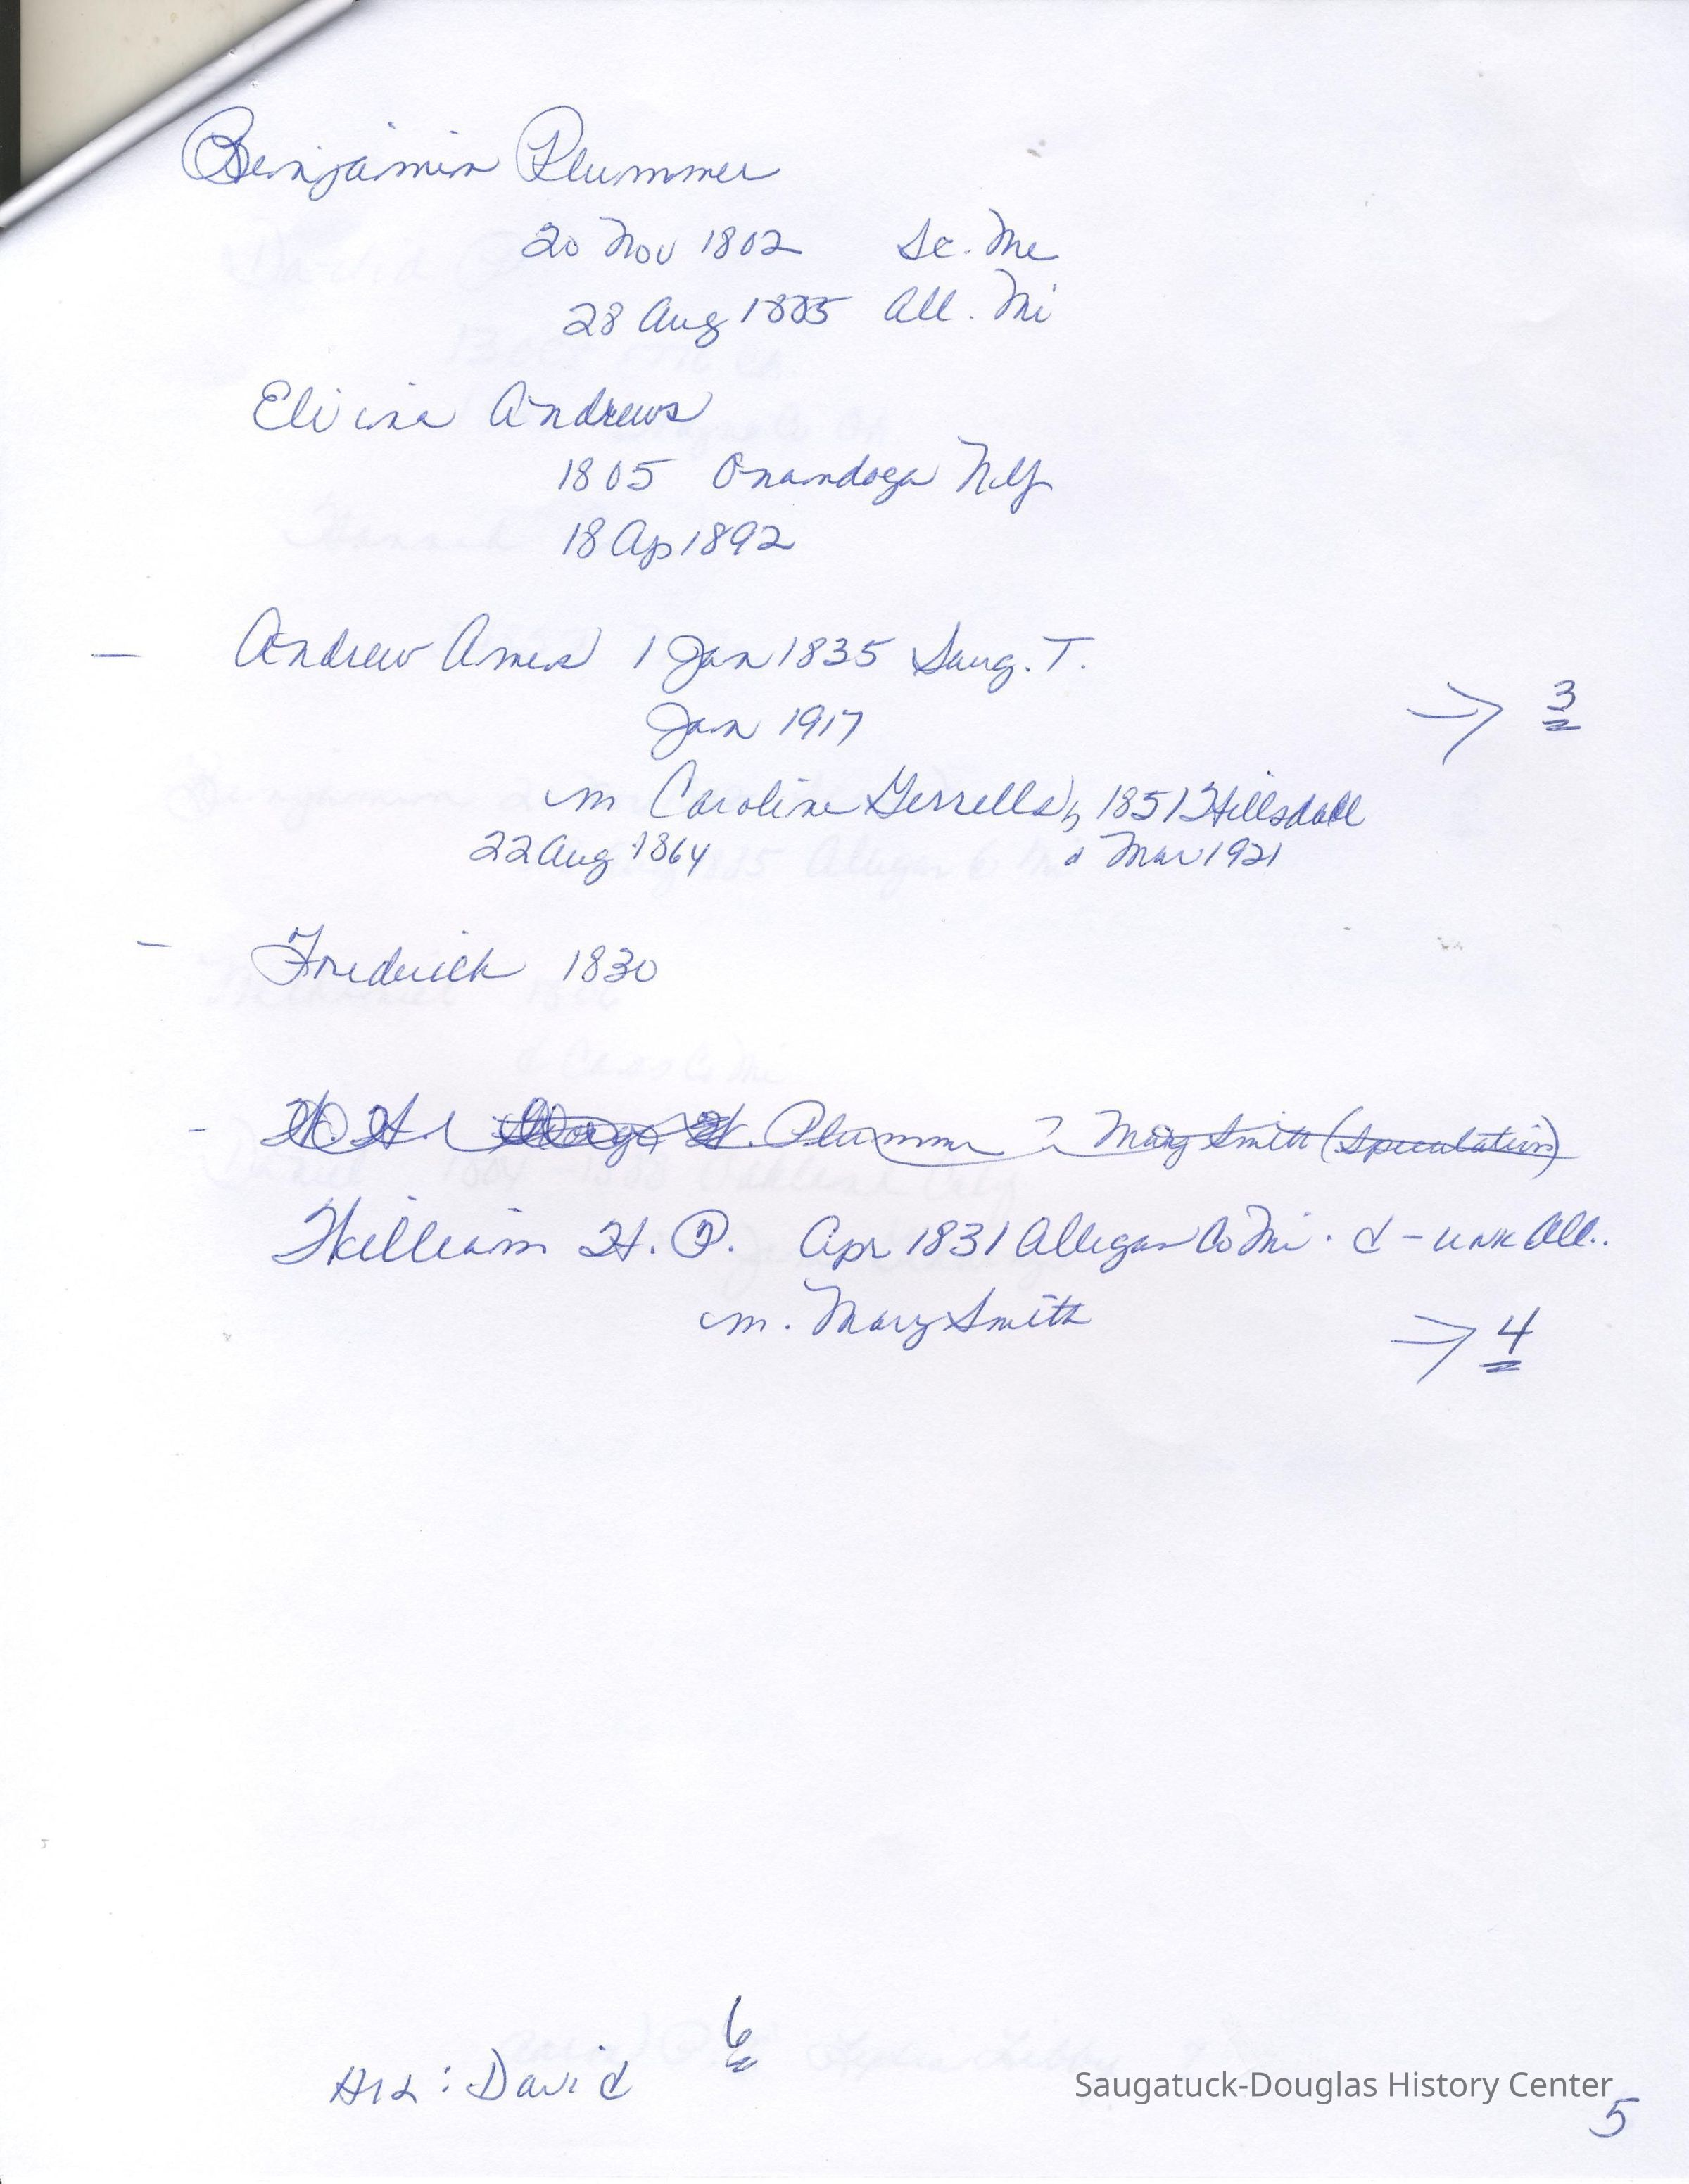 Benjamin Plummer
20 Nov 1802 Sc. Me
28 Aug 1885 All. Mi
Elvina Andrews
1805 Onandoga N.Y
18 Ap 1892
— Andrew Ames 1 Jan 1835 Saug. T.
Jan 1917
→ 3
m Caroline Gerrells b 1851 Hillsdall
22 Aug 1864 d Mar 1921
— Frederick 1830
- W. H. George W. Plummer ? Mary Smith (Speculation)
William H. P. Apr 1831 Allegan Co Mi. d - unk All..
m. Mary Smith
→ 4
6
: David
Saugatuck-Douglas History Center
5